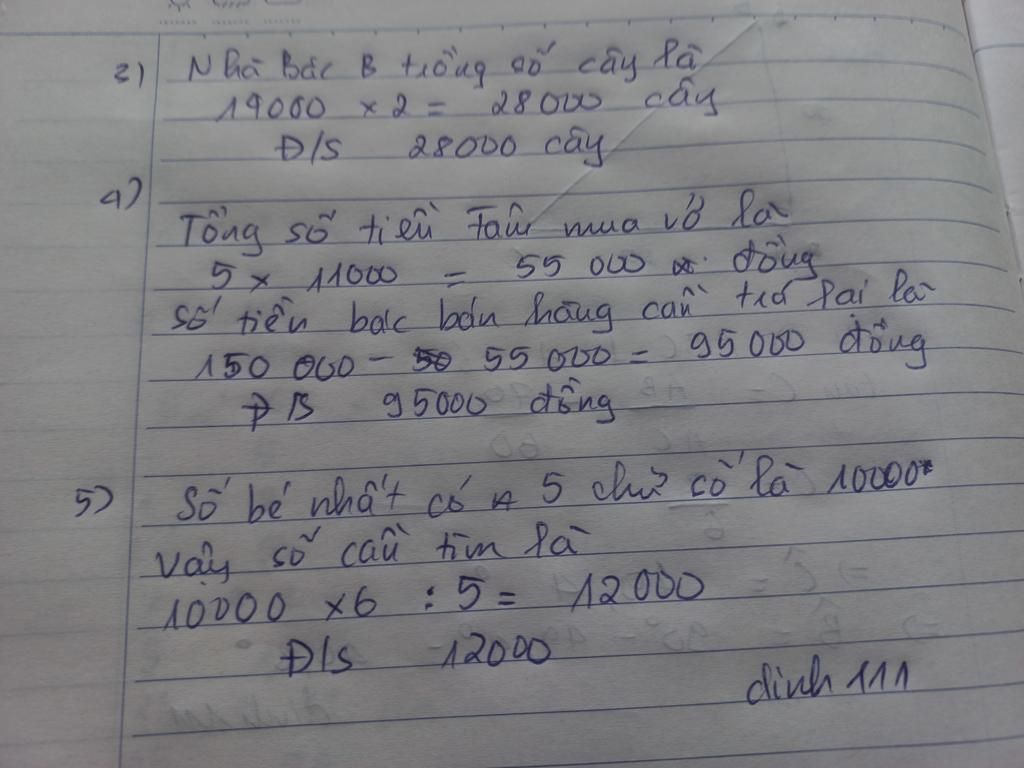 3) Nhà Bác B trồng số cây là
14000 x 2 = 28000 cây
Đ/S 28000 cây
4)
Tổng số tiền Tâm mua vở là
5 x 11000 = 55 000 đồng
Số tiền bác bán hàng cần trả lại là
150 000 - 55 000 = 95 000 đồng
Đ/S 95000 đồng
5) Số bé nhất có 5 chữ cố là 10000
Vậy số cần tìm là
10000 x 6 : 5 = 12000
Đ/S 12000
dinh 111